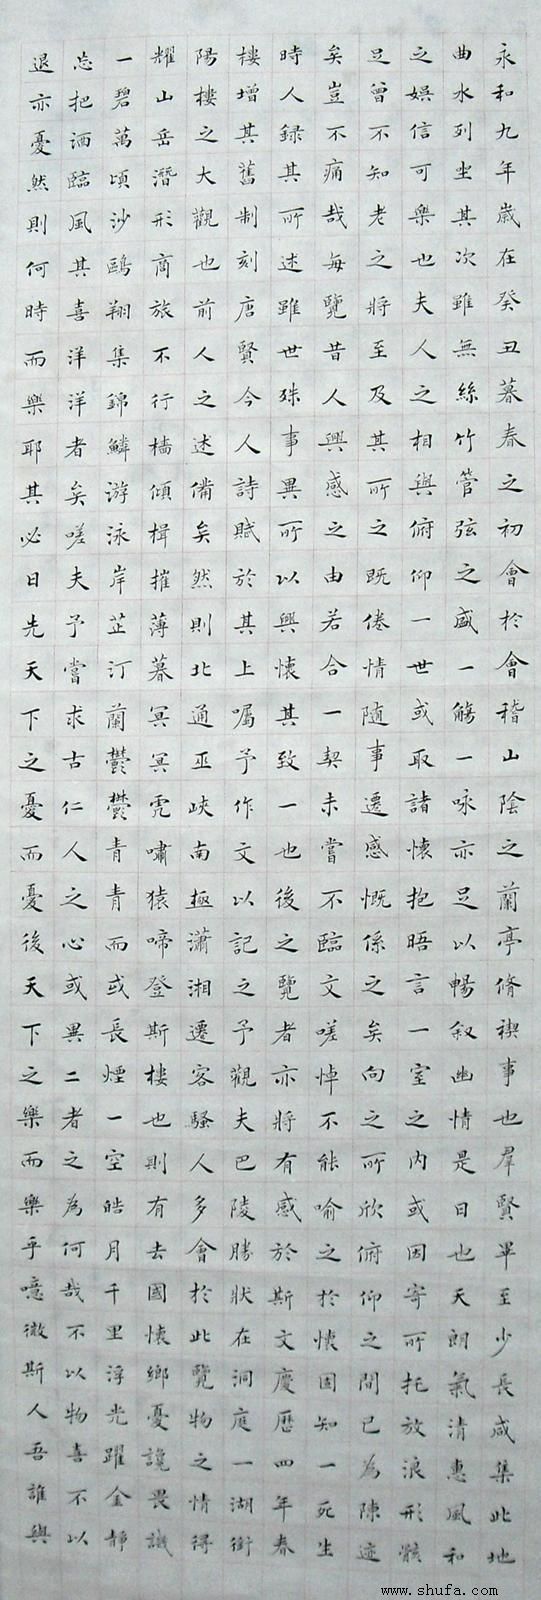 永和九年歲在癸丑暮春之初會於會稽山陰之蘭亭脩禊事也羣賢畢至少長咸集此地
曲水列坐其次雖無絲竹管弦之盛一觴一咏亦足以暢叙幽情是日也天朗氣清惠風和
之娛信可樂也夫人之相與俯仰一世或取諸懷抱晤言一室之內或因寄所托放浪形骸
足曾不知老之將至及其所之既倦情隨事遷感慨係之矣向之所欣俯仰之間已為陳迹
矣豈不痛哉每覽昔人興感之由若合一契未嘗不臨文嗟悼不能喻之於懷固知一死生
時人録其所述雖世殊事異所以興懷其致一也後之覽者亦將有感於斯文慶曆四年春
樓增其舊制刻唐賢今人詩賦於其上囑予作文以記之予觀夫巴陵勝狀在洞庭一湖銜
陽樓之大觀也前人之述備矣然則北通巫峽南極瀟湘遷客騷人多會於此覽物之情得
耀山岳潛形商旅不行檣傾楫摧薄暮冥冥虎嘯猿啼登斯樓也則有去國懷鄉憂讒畏譏
一碧萬頃沙鷗翔集錦鱗游泳岸芷汀蘭鬱鬱青青而或長煙一空皓月千里浮光躍金靜
忘把酒臨風其喜洋洋者矣嗟夫予嘗求古仁人之心或異二者之為何哉不以物喜不以
退亦憂然則何時而樂耶其必曰先天下之憂而憂後天下之樂而樂乎噫微斯人吾誰與
www.shufa.com